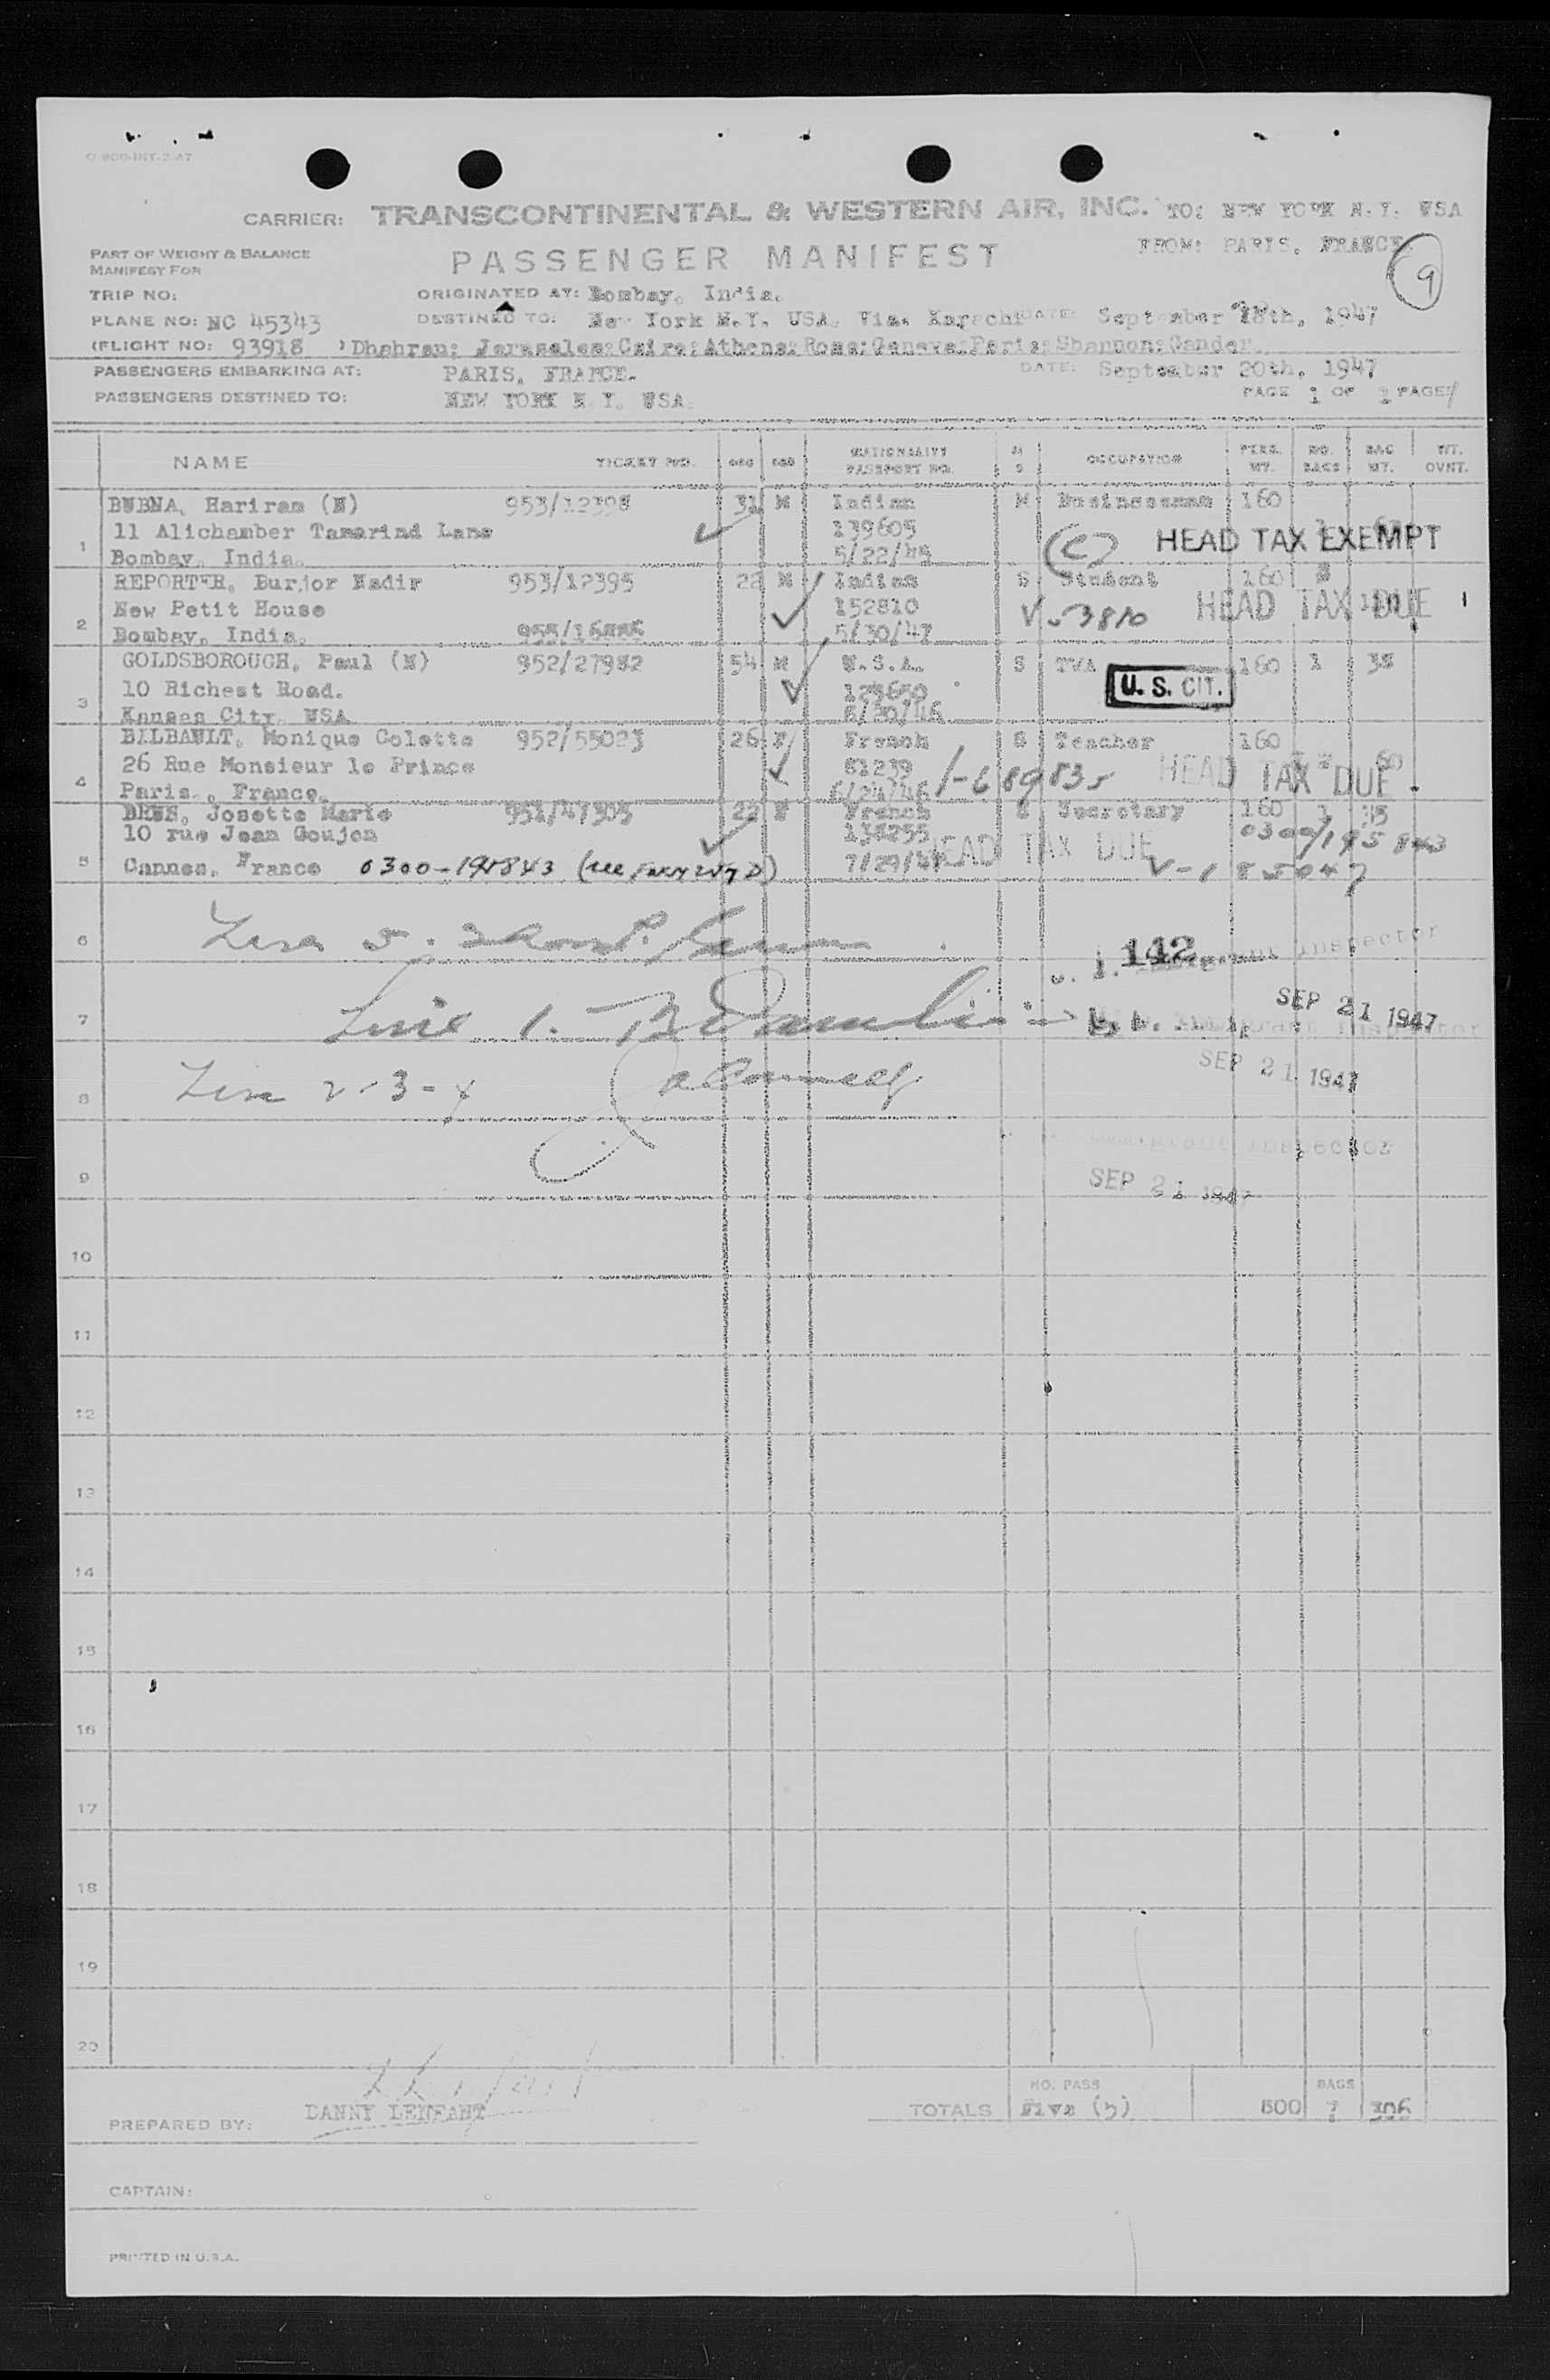 O-900-INT-2-47
CARRIER: TRANSCONTINENTAL & WESTERN AIR, INC. TO: NEW YORK N.Y. USA
PART OF WEIGHT & BALANCE PASSENGER MANIFEST FROM: PARIS, FRANCE.
MANIFEST FOR 9
TRIP NO: ORIGINATED AT: Bombay, India.
PLANE NO: NC 45343 DESTINED TO: New York N.Y. USA. Via. Karachi DATE: September 18th, 1947
(FLIGHT NO: 93918 ) Dhahran; Jerusalem; Cairo; Athens; Rome; Geneva; Paris; Shannon; Gander.
PASSENGERS EMBARKING AT: PARIS, FRANCE. DATE: September 20th, 1947
PASSENGERS DESTINED TO: NEW YORK N.Y. USA. PAGE 1 OF 1 PAGES
NAME TICKET NO. AGE SEX NATIONALITY PASSPORT NO. M S OCCUPATION PERS. WT. NO. BAGS BAG WT. WT. OVNT.
BUBNA, Hariram (N) 953/12398 31 M Indian M Businessman 160
11 Alichamber Tamarind Lane 139605 (C) HEAD TAX EXEMPT
1 Bombay, India. 5/22/45
REPORTER, Burjor Nadir 953/12395 22 M Indian S Student 160
New Petit House 152810 V 53810 HEAD TAX DUE
2 Bombay, India. 5/30/47
GOLDSBOROUGH, Paul (N) 952/27982 54 M U.S.A. S TWA 160 1 38
10 Richest Road. U. S. CIT.
3 Kansas City, USA
BILBAULT, Monique Colette 952/55023 26 F French S Teacher 160
26 Rue Monsieur le Prince 61239 1-689835 HEAD TAX DUE
4 Paris., France. 6/24/46
Josette Marie 951/47305 22 F French S Secretary 160 1
10 rue Jean Goujon HEAD TAX DUE 0300/195843
5 Cannes, France 0300-195843 7/29/47 V-185047
6 142 Immigrant Inspector
7 Line 1. SEP 21 1947
Immigrant Inspector
8 Line 2-3-4 SEP 21 1947
Immigrant Inspector
9 SEP 21 1947
10
11
12
13
14
15
16
17
18
19
20
NO. PASS BAGS
PREPARED BY: DANNY LENFANT TOTALS Five (5) 800 7 306
CAPTAIN:
PRINTED IN U.S.A.